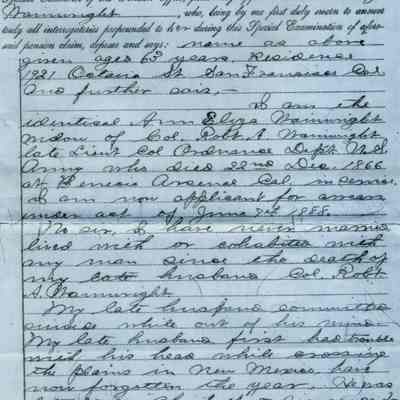 Wainwright, who, being by me first duly sworn to answer
truly all interrogatories propounded to her during this Special Examination of afore-
said pension claim, deposes and says: name as above
given aged 63 years. Residence
1921 Octavia St San Francisco Cal
and further says,-
I am the
identical Ann Eliza Wainwright
widow of Col. Robt A Wainwright
late Lieut Col Ordnance Dept U.S.
Army who died 22nd Dec. 1866
at Benecia Arsenal Cal. in service.
I am now applicant for arrears
under act of June 7th 1888.
No sir, I have never married
lived with or cohabited with
any man since the death of
my late husband Col. Robt
A. Wainwright
My late husband committed
suicide while out of his mind.
My late husband first had trouble
with his head while crossing
the plains in New Mexico, have
now forgotten the year. He was